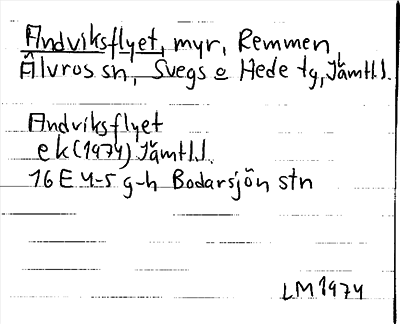 Andviksflyet, myr, Remmen,
Älvros sn, Svegs o Hede tg, Jämtl.l.
Andviksflyet
ek (1974) Jämtl.l.
16E 4-5 g-h Bodarsjön stn
LM 1974